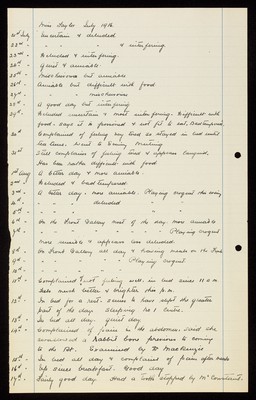 Miss Taylor July 1916
21st July Uncertain & deluded
22nd " " " & interfering
23rd " Deluded & interfering
24th " Quiet & amiable
25th " Mischievous but amiable
26th " Amiable but difficult with food
27th " " " mischievous
28th " A good day but interfering
29th " Deluded uncertain & most interfering. Difficult with
food. Says it is poisoned & not fit to eat. Bad tempered
30th Complained of feeling very tired so stayed in bed until
tea time. Went to Evening Meeting
31st Still complains of feeling tired & appears languid.
Has been rather difficult with food
1st Aug A better day & more amiable.
2nd " Deluded & bad tempered
3rd " A better day & more amiable. Playing croquet this evening
4th " " " deluded " "
5th " " " " "
6th " On the Front Gallery most of the day more amiable
7th " " " " " " Playing croquet
more amiable & appears less deluded
8th " On Front Gallery all day & having meals on the Front
9th " " " " Playing croquet
10th "
Complained of not feeling well. in bed since 11 a.m.
Felt much better & brighter this p.m.
In bed for a rest. seems to have slept the greater
part of the day. Sleeping no 1 centre.
In bed all day. Quiet day
Complained of pain in the abdomen. Said she
swallowed a Rabbit bone previous to coming
to the . Examined by Dr Mackenzie
15th " In bed all day & complains of pain after meals
16th " Up since breakfast. Good day
17th " Fairly good day. Had a tooth stopped by Mr